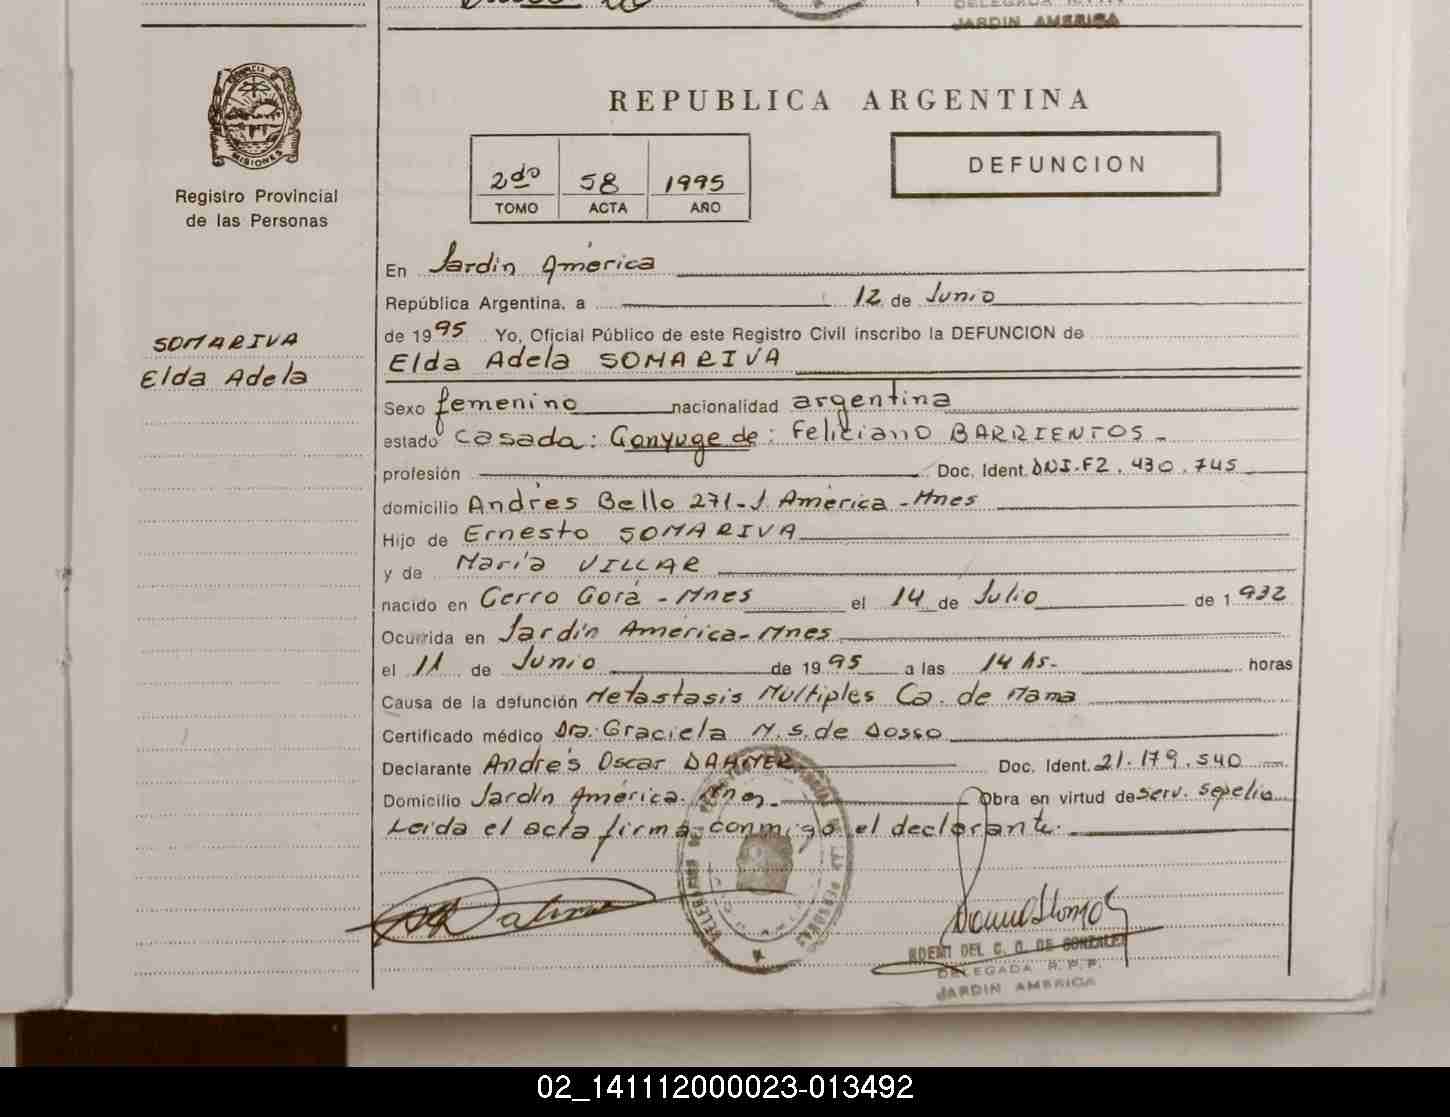 JARDIN AMERICA
PROVINCIA DE
MISIONES
Registro Provincial
de las Personas
REPUBLICA ARGENTINA
DEFUNCION
2do 58 1995
TOMO ACTA AÑO
SOMARIVA
Elda Adela
En Jardín América
República Argentina, a 12 de Junio
de 1995 Yo, Oficial Público de este Registro Civil inscribo la DEFUNCION de
Elda Adela SOMARIVA
Sexo femenino nacionalidad argentina
estado casada: Conyuge de: Feliciano BARRIENTOS.-
profesión Doc. Ident. DNI.F2.430.745
domicilio Andrés Bello 271-J. América-Mnes
Hijo de Ernesto SOMARIVA
y de María VILLAR
nacido en Cerro Corá - Mnes el 14 de Julio de 1932
Ocurrida en Jardín América-Mnes
el 11 de Junio de 1995 a las 14 hs.- horas
Causa de la defunción Metastasis Multiples Ca. de Mama
Certificado médico Dra. Graciela M.S. de Dosso
Declarante Andrés Oscar DAHMER Doc. Ident. 21.179.540
Domicilio Jardín América. Mnes.- Obra en virtud de serv. sepelio
Leída el acta firma conmigo el declarante.
DEL C. O. DE GONZALEZ
DELEGADA R.P.P.
JARDIN AMERICA
02_141112000023-013492